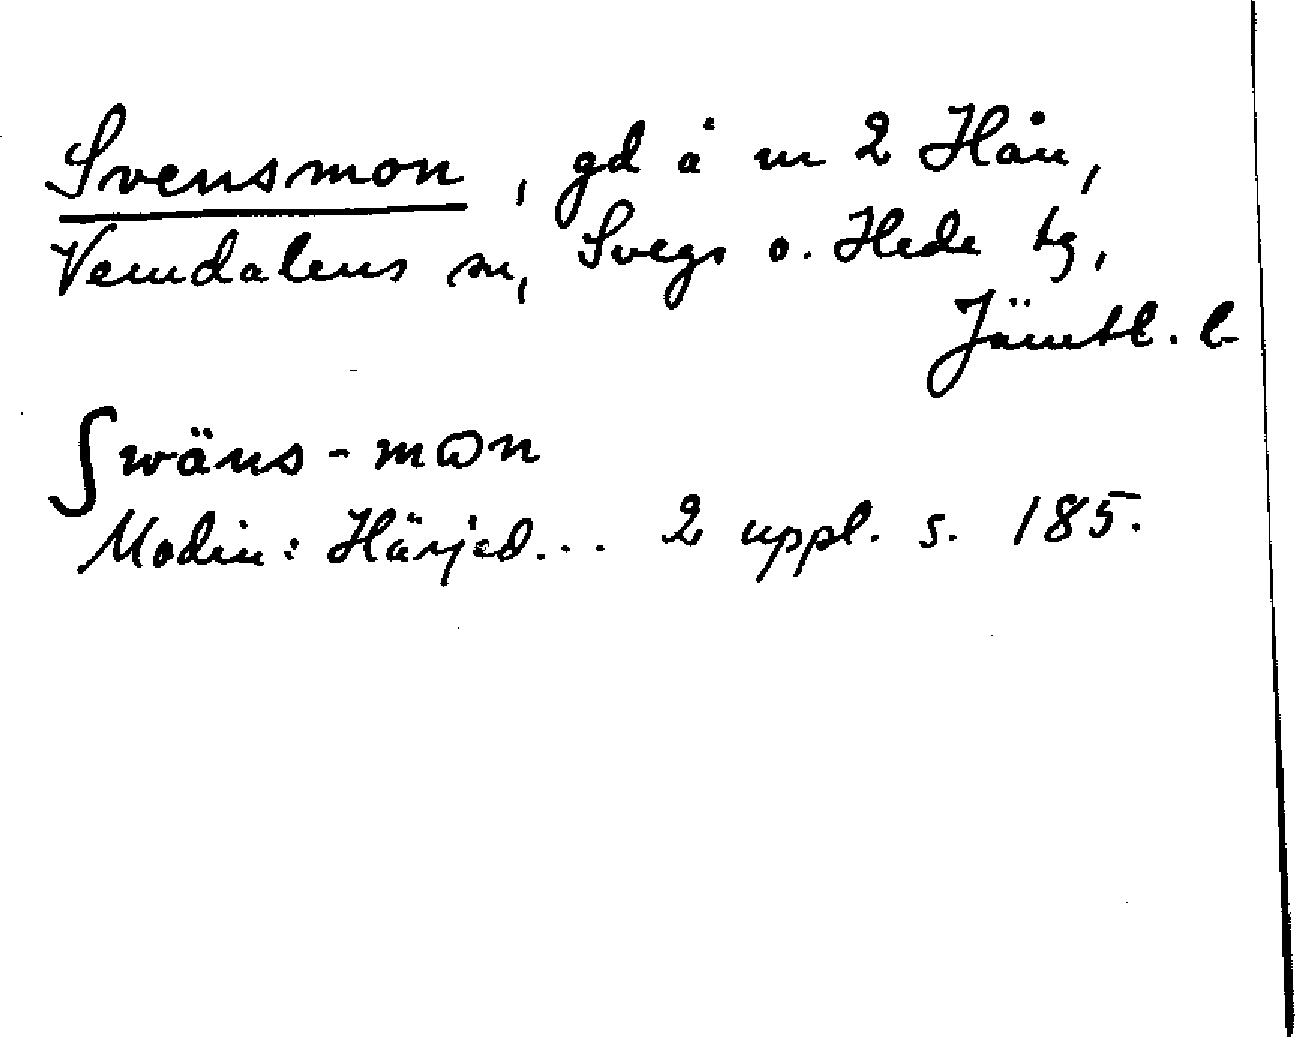 Svensmon, gd å nr 2 Hån,
Vemdalens sn, Svegs o. Hede tg,
Jämtl. l
ʃwäns-mɷn
Modin: Härjed... 2 uppl. s. 185.